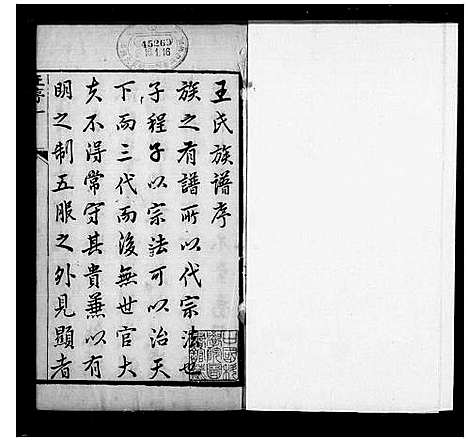 王氏族譜序
族之有譜所以代宗法也
子程子以宗法可以治天
下而三代而後無世官大
夫不得常守其貴兼以有
明之制五服之外見顯者
45260